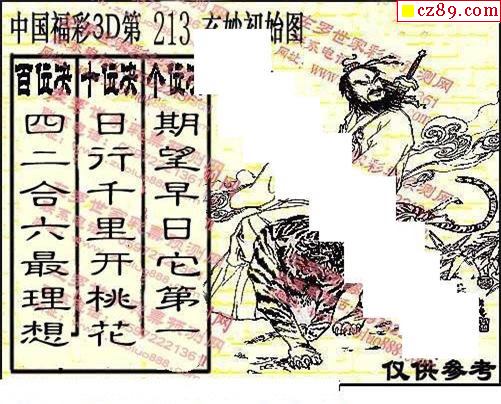 cz89.com
中国福彩3D第 213 玄妙初始图
百位决
四二合六最理想
十位决
日行千里开桃花
个位决
期望早日它第一
仅供参考